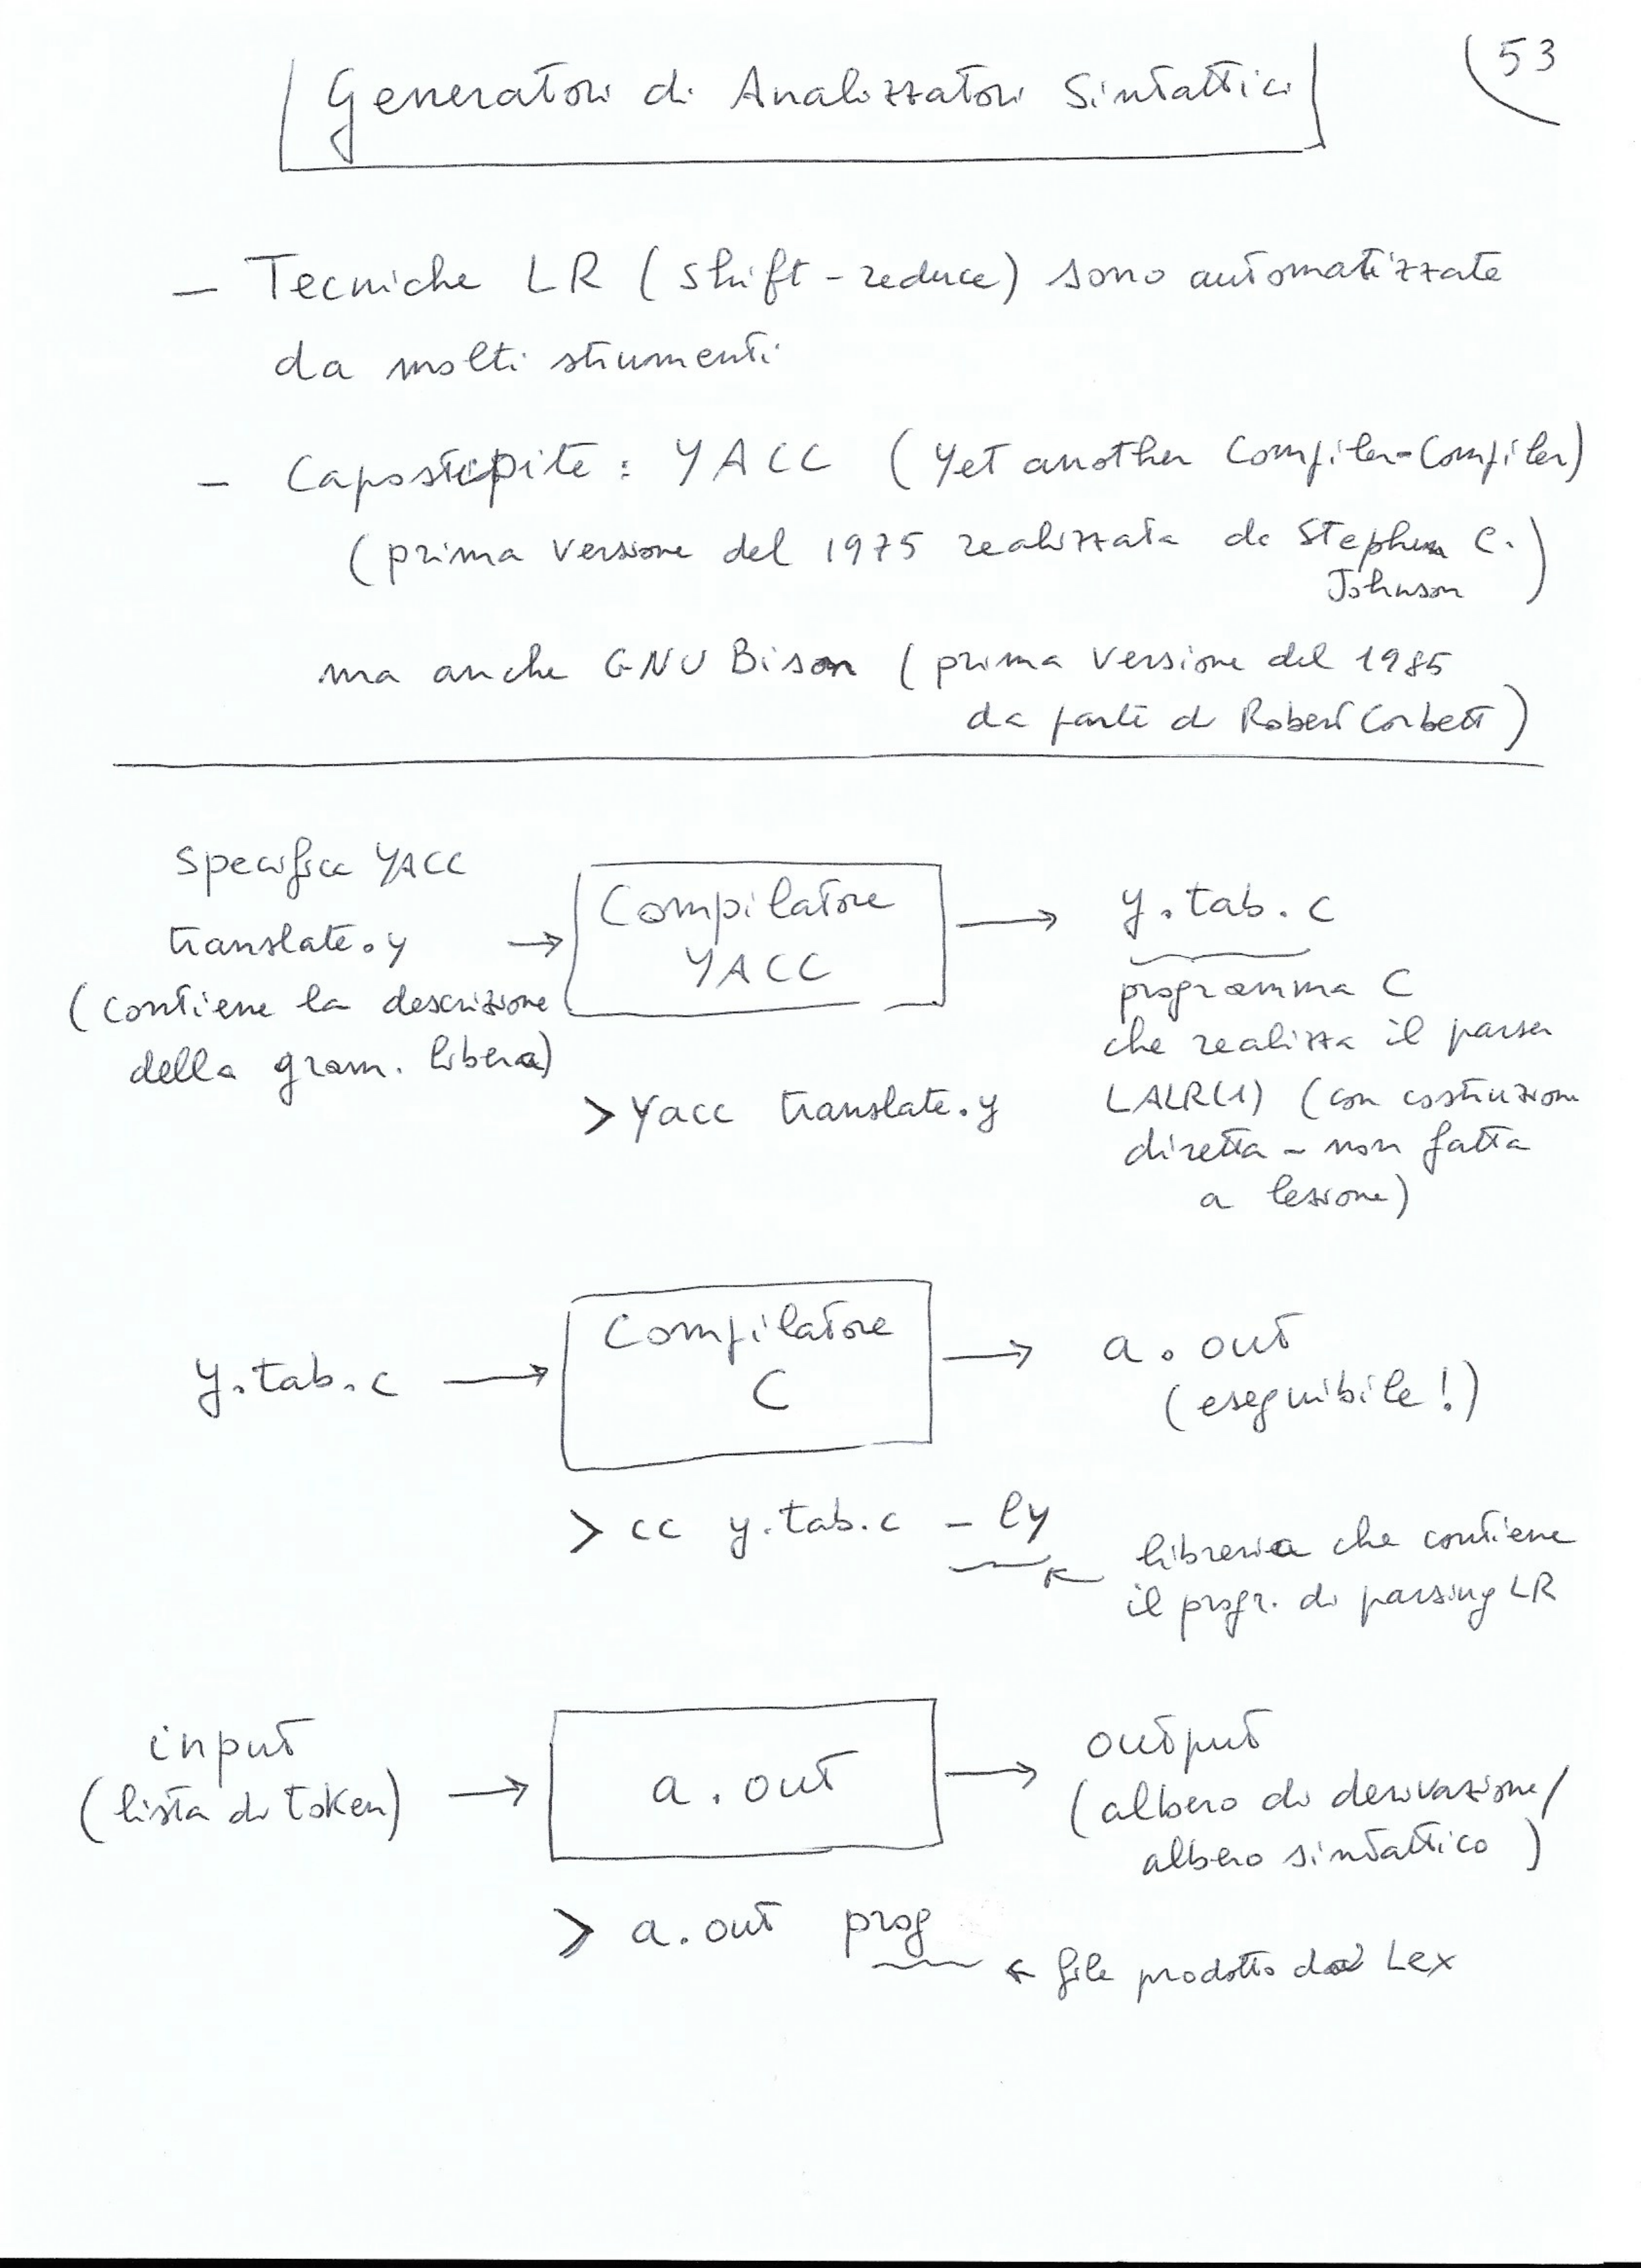 53
Generatori di Analizzatori Sintattici
- Tecniche LR (shift-reduce) sono automatizzate
da molti strumenti
- Capostipite : YACC (Yet another Compiler-Compiler)
(prima versione del 1975 realizzata da Stephen C.
Johnson)
ma anche GNU Bison (prima versione del 1985
da parte di Robert Corbett)
Specifica YACC
translate.y
(contiene la descrizione
della gram. libera)
→
Compilatore
YACC
→
y.tab.c
programma C
che realizza il parser
LALR(1) (con costruzione
diretta - non fatta
a lezione)
> Yacc translate.y
y.tab.c →
Compilatore
C
→ a.out
(eseguibile!)
> cc y.tab.c -ly
← libreria che contiene
il progr. di parsing LR
input
(lista di token) →
a.out
→ output
(albero di derivazione/
albero sintattico)
> a.out prog
← file prodotto da Lex